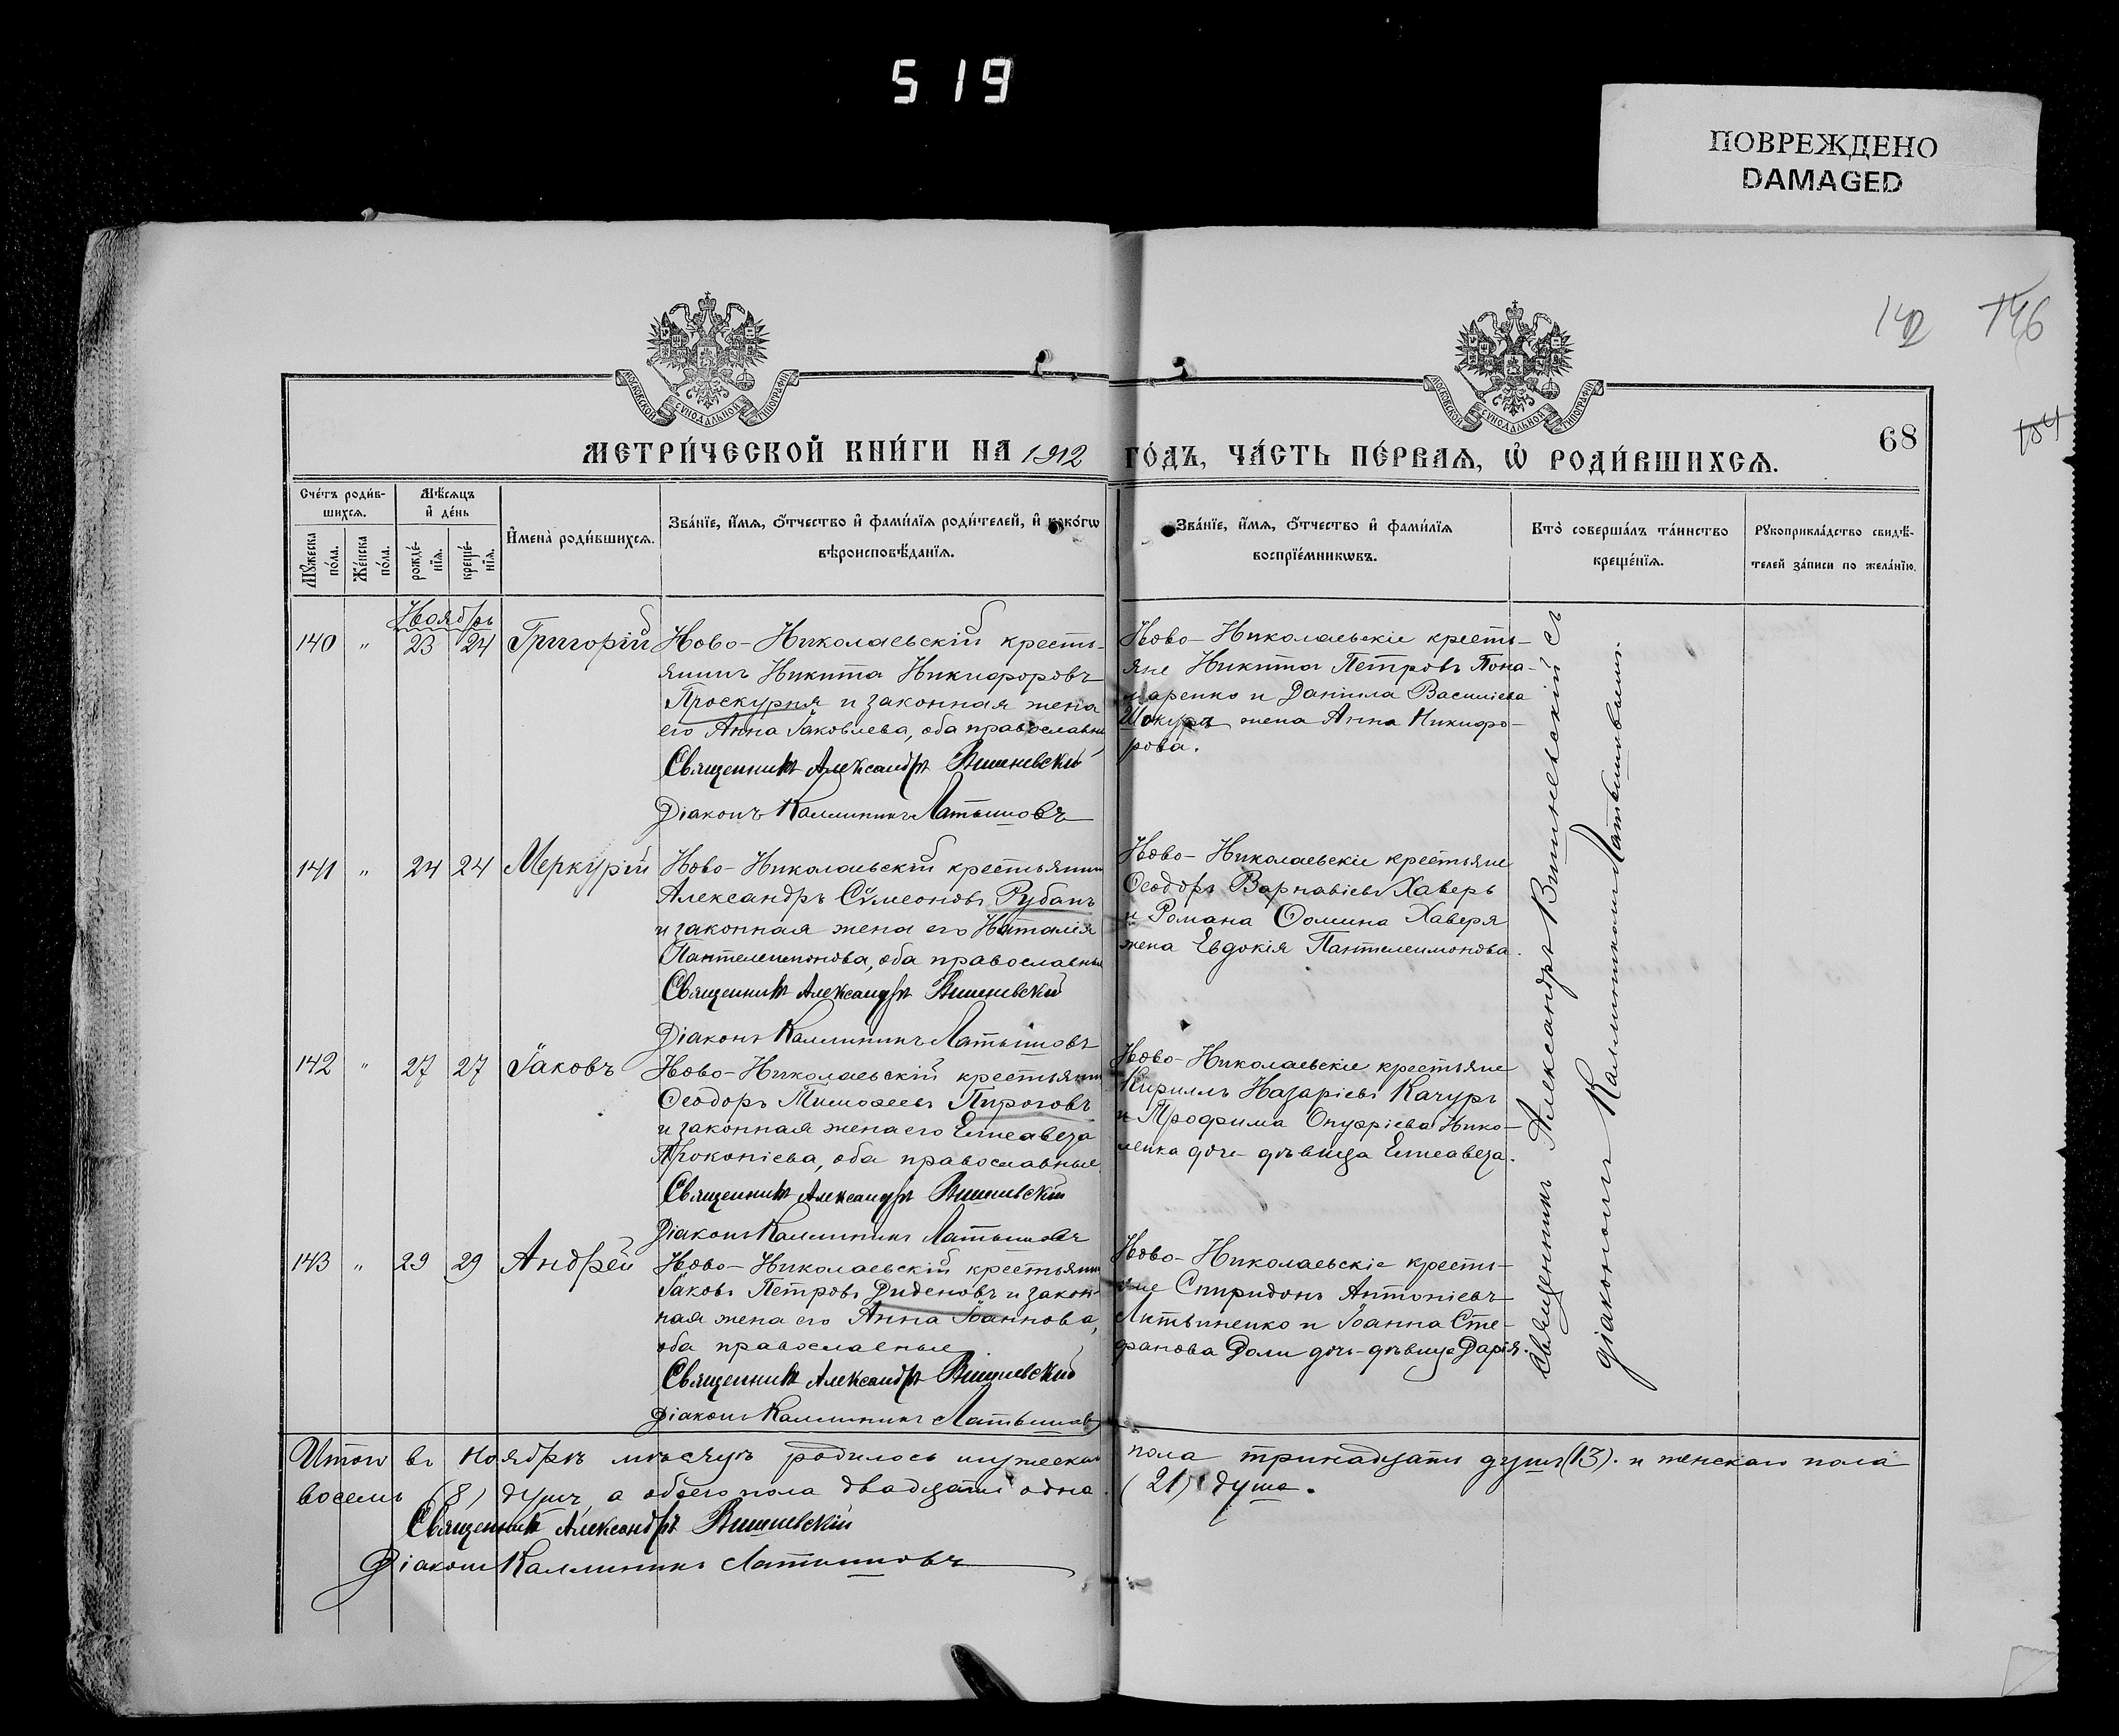 519
ПОВРЕЖДЕНО
DAMAGED
142 146
104
МОСКОВСКОЙ СѴНОДАЛЬНОЙ ТИПОГРАФІИ
МОСКОВСКОЙ СѴНОДАЛЬНОЙ ТИПОГРАФІИ
МЕТРИ́ЧЕСКОЙ КНИ́ГИ НА 1912 ГО́ДЪ, ЧА́СТЬ ПЕ́РВАѦ, Ѡ҆ РОДИ́ВШИХСѦ.
68
Сче́тъ роди́в-
шихсѧ.
Мꙋ́жеска по́ла.
Же́нска по́ла.
Мѣ́сѧцъ
и҆ де́нь
рожде́-
нїѧ.
креще́-
нїѧ.
И҆мена̀ роди́вшихсѧ.
Зва́нїе, и҆́мѧ, ѻ҆́тчество и҆ фами́лїѧ роди́телей, и҆ како́гѡ
вѣроисповѣ́данїѧ.
Зва́нїе, и҆́мѧ, ѻ҆́тчество и҆ фами́лїѧ
воспрїе́мникѡвъ.
Кто̀ соверша́лъ та́инство
креще́нїѧ.
Рꙋкоприкла́дство свидѣ́-
телей за́писи по жела́нїю.
Ноябрь
140 " 23 24 Григорій
Ново-Николаевскій кресть-
янинъ Никита Никифоровъ
Проскурня и законная жена
его Анна Іаковлева, оба православные
Священникъ Александръ Вишневскій
Діаконъ Каллиникъ Латышовъ
Ново-Николаевскіе кресть-
яне Никита Петровъ Пона-
маренко и Даниила Василіева
Шокура жена Анна Никифо-
рова.
141 " 24 24 Меркурій
Ново-Николаевскій крестьянинъ
Александръ Сѵмеоновъ Рубанъ
и законная жена его Наталія
Пантелеимонова, оба православные
Священникъ Александръ Вишневскій
Діаконъ Каллиникъ Латышовъ
Ново-Николаевскіе крестьяне
Ѳеодоръ Варнавіевъ Хаверь
и Романа Ѳомина Хаверя
жена Евдокія Пантелеимонова.
142 " 27 27 Іаковъ
Ново-Николаевскій крестьянинъ
Ѳеодоръ Тимоѳеевъ Пироговъ
и законная жена его Елисавета
Прокопіева, оба православные.
Священникъ Александръ Вишневскій
Діаконъ Каллиникъ Латышовъ
Ново-Николаевскіе крестьяне
Кириллъ Назаріевъ Качуръ
и Трофима Онуфріева Нико-
ленка дочь-дѣвица Елисавета.
143 " 29 29 Андрей
Ново-Николаевскій крестьянинъ
Іаковъ Петровъ Диденовъ и закон-
ная жена его Анна Іоаннова,
оба православные
Священникъ Александръ Вишневскій
Діаконъ Каллиникъ Латышовъ
Ново-Николаевскіе кресть-
яне Спиридонъ Антоніевъ
Литвиненко и Іоанна Сте-
фанова Доли дочь-дѣвица Дарія.
Священникъ Александръ Вишневскій съ
діакономъ Каллиникомъ Латышовымъ.
Итого въ ноябрѣ мѣсяцѣ родилось мужеска пола тринадцать душъ (13). и женскаго пола
восемь (8) душъ, а обоего пола двадцать одна (21) душа.
Священникъ Александръ Вишневскій
Діаконъ Каллиникъ Латышовъ